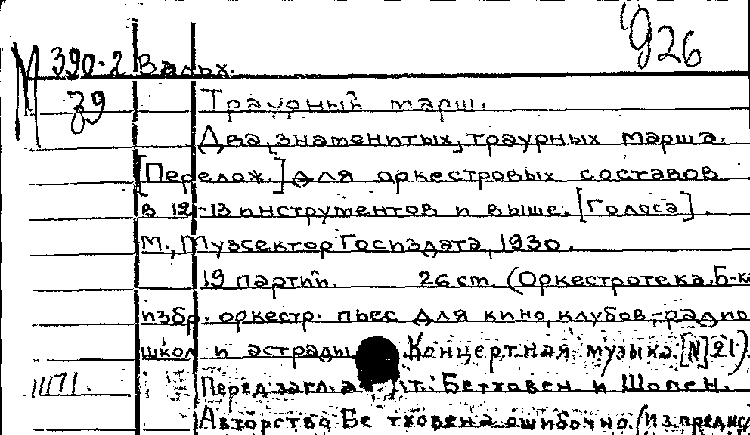 926
М 390-2 Вальх.
39 Траурный марш.
Два „знаменитых„ траурных марша.
[Перелож.] для оркестровых составов
в 12-13 инструментов и выше. [Голоса].
М., Музсектор Госиздата, 1930.
19 партий. 26 ст. (Оркестротека. Б-ка
избр. оркестр. пьес для кино, клубов, радио
школ и эстрады Концертная музыка [N] 21)
Перед загл. Бетховен и Шопен.
Авторство Бетховена ошибочно (Из.